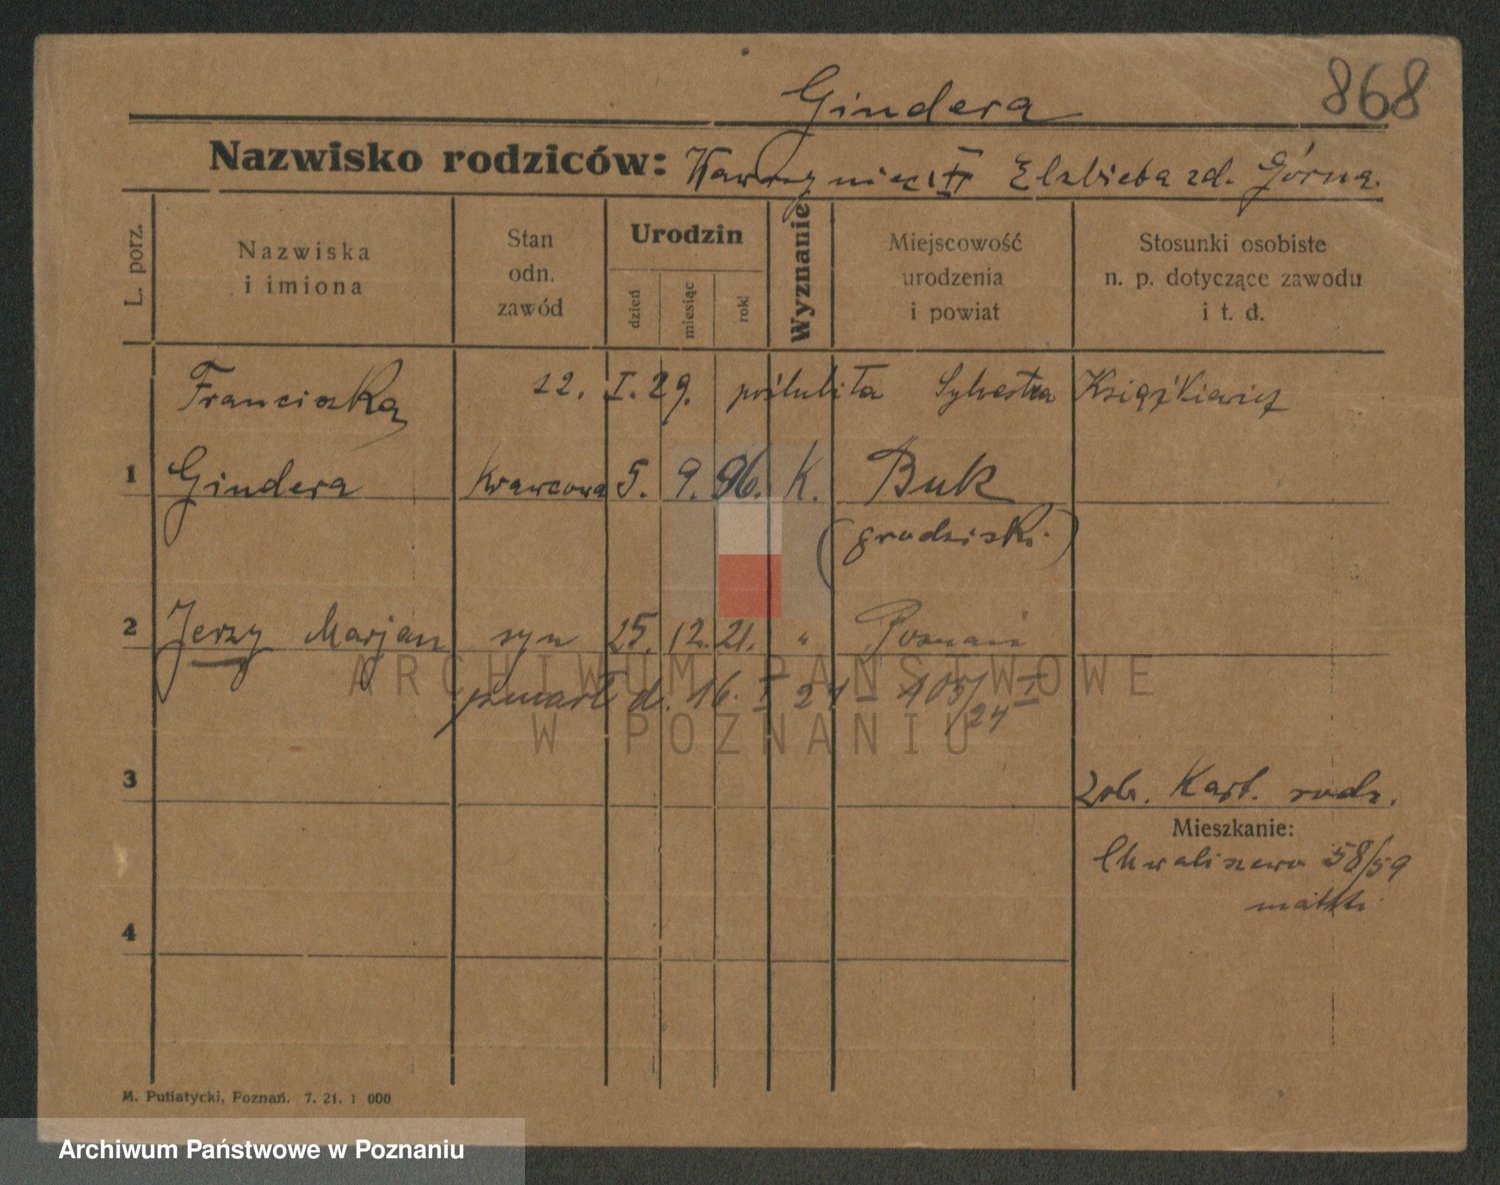 868
Gindera
Nazwisko rodziców: Wawrzyniec i Elżbieta zd. Górna.
L. porz.
Nazwiska
i imiona
Stan
odn.
zawód
Urodzin
dzień
miesiąc
rok
Wyznanie
Miejscowość
urodzenia
i powiat
Stosunki osobiste
n. p. dotyczące zawodu
i t. d.
Franciszka 22. I. 29. poślubiła Sylvestra Książkiewicz
1 Gindera Krawcowa 5. 9. 96. K. Buk
(grodziski.)
2 Jerzy Marjan syn 25. 12. 21. " Poznań
zmarł d. 16. I 24 - 105/24 I
3
Zob. Kart. rodz.
Mieszkanie:
Chwaliszewo 58/59
4
M. Putiatycki, Poznań. 7. 21. 1 000
ARCHIWUM PAŃSTWOWE
W POZNANIU
Archiwum Państwowe w Poznaniu